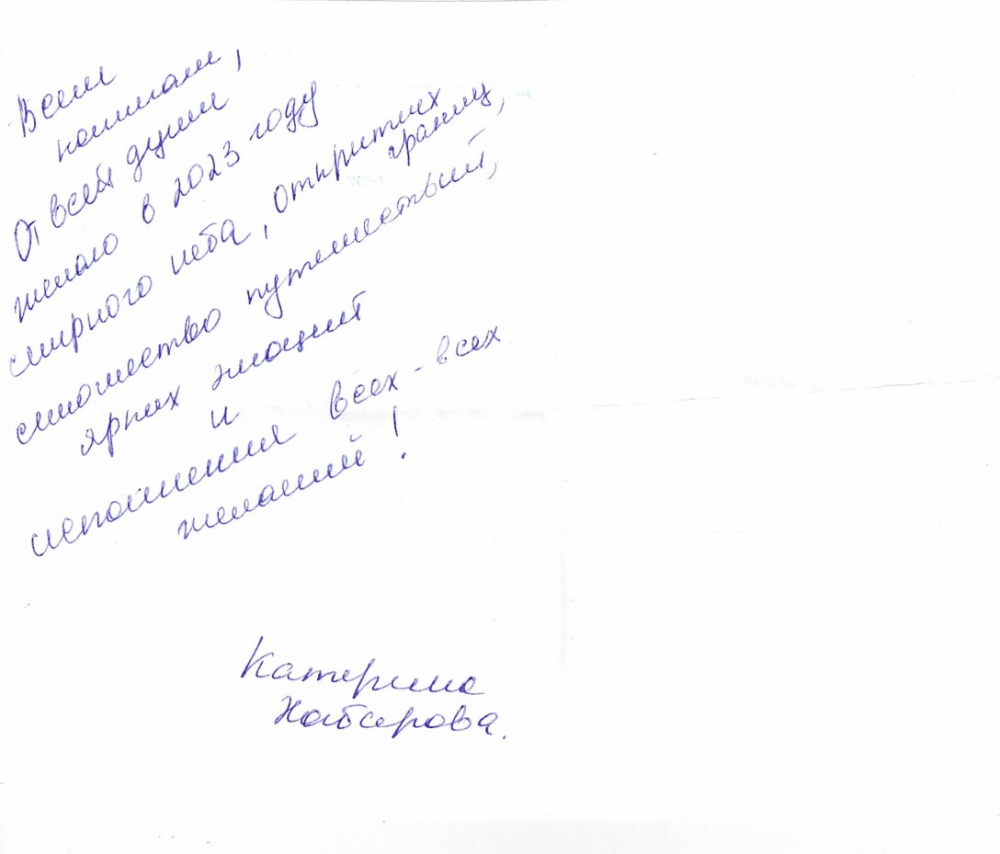 Всем
От всей души
желаю в 2023 году
мирного неба, открытых
границ,
множество путешествий,
ярких эмоций
и
исполнения всех-всех
желаний!
Катерина